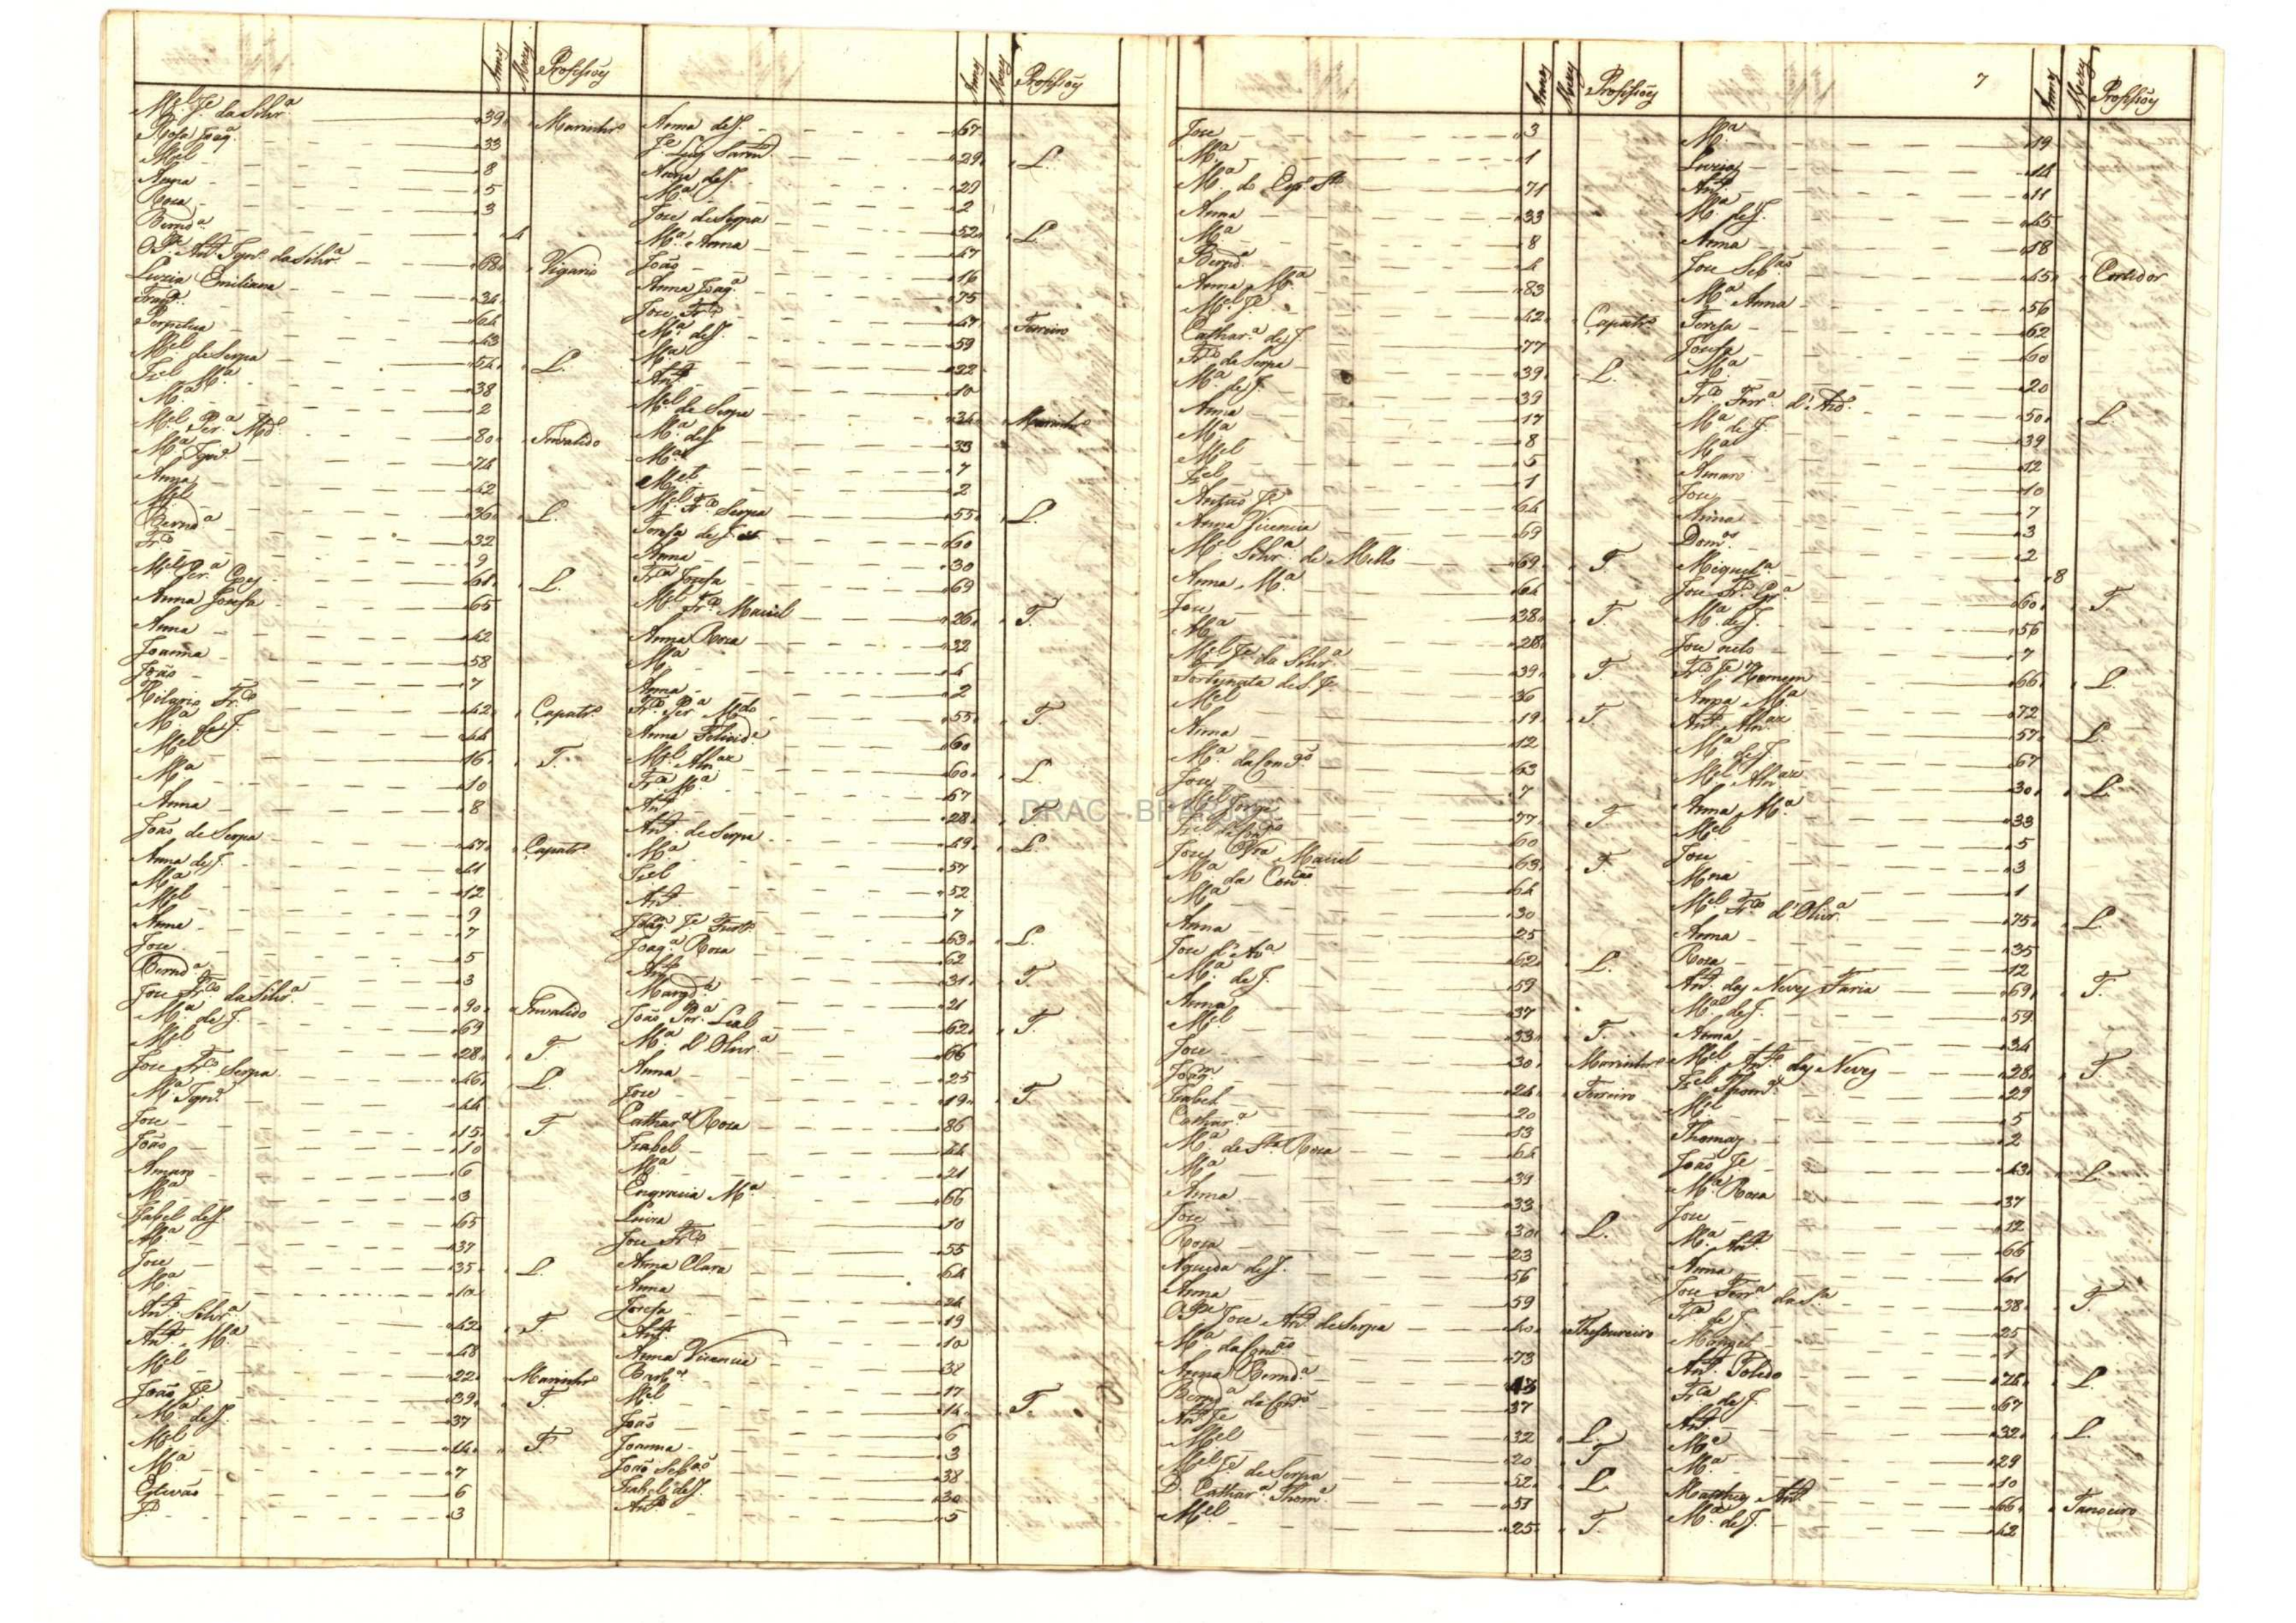 Annos Mezes Profissoẽs
M.el J.e da Silvr.a 39 Marinhr.o
Roza Joaq.a 33
M.el 8
Anna 5
Roza 3
Bernd.a 4
O P.e Ant.o Ign.o da Silvr.a 68 Vigario
Luzia Emiliana 34
Fran.ca 64
Perpetua 43
M.el de Serpa 54 L.
Izel M.a 38
M.a 2
M.el Per.a Md.o 80 Invalido
M.a Ign.a 74
Anna 42
M.el 36 L.
Bernd.a 32
Fr.co 9
M.el Per.a 61 L.
Anna Josefa 65
Anna 42
Joanna 58
João 7
Hilario Fr.co 42 Çapatr.o
M.a de J. 44
M.el 16 T.
M.a 10
Anna 8
João de Serpa 47 Çapatr.o
Anna de J. 41
M.a 12
M.el 9
Anna 7
Joze 5
Bernd.a 3
Joze Fr.co da Silvr.a 90 Invalido
M.a de J. 69
M.el 28 T.
Joze Fr.co Serpa 46 L.
M.a Ign.a 44
Joze 15 T
João 10
Amaro 6
M.a 3
Izabel de J. 65
M.a 37
Joze 35 L.
M.a 10
Ant.o Silvr.a 42 T
Ant.a M.a 48
M.el 22 Marinhr.o
João J.e 39 T.
M.a de J. 37
M.el 14 T
M.a 7
Estevão 6
J.e 3
Annos Mezes Profissoẽs
Anna de J. 67
J.e Luis 29 L.
Anna de J. 29
M.a 2
Joze de Serpa 52 L.
M.a Anna 47
João 16
Anna Joaq.a 75
Joze Fr.co 47 Ferreiro
M.a de J. 59
M.a 22
Ant.o 10
M.el de Serpa 34 Marinhr.o
M.a de J. 33
M.a 7
M.el 2
M.el Fr.co Serpa 55 L.
Tereza de J. 60
Anna 30
Fr.ca Josefa 69
M.el Fr.co Maciel 26 T.
Anna Roza 32
M.a 4
Anna 2
Fr.co Per.a Md.o 55 T.
Anna Felicid.e 60
M.el Alv.az 60 L.
Fr.ca M.a 67
Ant.o 28 T.
Ant.o de Serpa 49 L.
M.a 57
Izel 52
Ant.o 7
Joaq.m J.e 63 L.
Joaq.a Roza 62
Ant.o 31 T.
Margd.a 21
João Per.a Leal 62 T.
M.a d'Olivr.a 66
Anna 25
Joze 19 T.
Cathar.a Roza 86
Izabel 44
M.a 21
Engracia M.a 66
Luiza 10
Joze Fr.co 55
Anna Clara 64
Anna 24
Josefa 19
Ant.o 10
Anna Vicencia 38
Barb.a 17
M.el 14 T.
João 6
Joanna 3
João Seb.ão 38
Izabel de J. 30
Ant.o 5
Annos Mezes Profissoẽs
Joze 3
M.a 1
M.a do Esp.o S.to 71
Anna 33
M.a 8
Bernd.a 4
Anna M.a 83
M.el J.e 42 Çapatr.o
Cathar.a de J. 77
Fr.co de Serpa 39 L.
M.a de J. 39
Anna 17
M.a 8
M.el 5
Izel 1
Antonio J.e 64
Anna Vicencia 69
M.el Silvr.a de Mello 69 T
Anna M.a 64
Joze 38 T
M.a 28
M.el J.e da Silvr.a 39 T.
Fortunata de S. J.e 36
M.el 19 T.
Anna 12
M.a da Con.ção 63
Joze 7
M.el Jorge 77 T
Izel da Con.ção 60
Joze Olivr.a Maciel 63 T.
M.a da Con.ção 64
M.a 30
Anna 25
Joze d'Av.a 62 L.
M.a de J. 59
Anna 37
M.el 33 T.
Joze 30 Marinhr.o
Joaq.m 24 Ferreiro
Izabel 20
Cathar.a 13
M.a de S.ta Roza 64
M.a 39
Anna 33
Joze 30 L.
Roza 23
Agueda de J. 56
Anna 59
O P.e Joze Ant.o de Serpa 40 Thesoureiro
M.a da Con.ção 73
Anna Bernd.a 43
Bernd.a da Con.ção 37
Ant.o J.e 32 L.
M.el 20 T
M.el J.e de Serpa 52 L.
D. Cathar.a Thom.a 51
M.el 25 T.
7
Annos Mezes Profissoẽs
M.a 19
Luzia 14
Ant.o 11
M.a de J. 45
Anna 18
Joze Seb.ão 45 Cortidor
M.a Anna 56
Tereza 62
Josefa 60
M.a 20
Fr.co Ferr.a d'And.e 50 L.
M.a de J. 39
M.a 12
Amaro 10
Joze 7
Anna 3
Dom.os 2
Miquel.a 8
Joze Fr.co 60 T.
M.a de J. 56
Joze neto 7
Fr.co J.e Homem 66 L.
Anna M.a 72
Ant.o Alv.az 57 L.
M.a de J. 67
M.el Alv.az 30 L.
Anna M.a 33
M.el 5
Joze 3
M.na 1
M.el Fr.co d'Olivr.a 75 L.
Anna 35
Roza 12
Ant.o das Neves Faria 69 T.
M.a de J. 59
Anna 34
M.el Ant.o das Neves 28 T
Izel Thom.a 29
M.el 5
Thomas 2
João J.e 43 L.
M.a Roza 37
Joze 12
M.a Ant.a 66
Anna 61
Joze Ferr.a da S.a 38 T
Fr.ca de J. 25
Manoel 1
Ant.o Toledo 74 L.
Fr.ca de J. 67
Ant.o 32 L.
M.a 29
M.a 10
Matheus Ant.o 66 Tanoeiro
M.a de J. 42